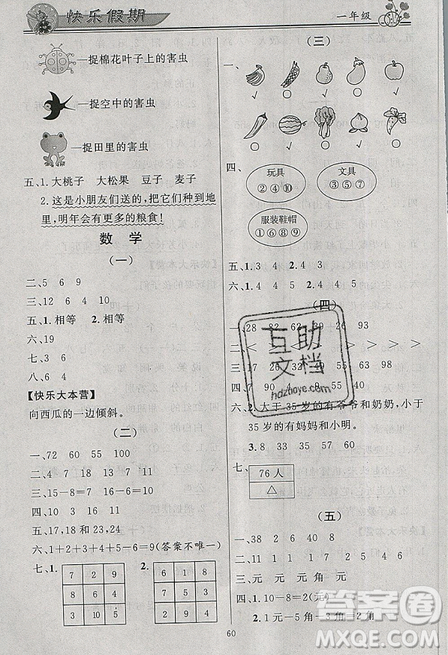 快乐假期
一年级
捉棉花叶子上的害虫
捉空中的害虫
捉田里的害虫
五、1.大桃子 大松果 豆子 麦子
2.这是小朋友们送的,把它们种到地里,明年会有更多的粮食!
数学
(一)
二、5 6 9
三、12 6 4 10
五、1.相等 2.相等
七、19 3
八、6 4
【快乐大本营】
向西瓜的一边倾斜。
(二)
一、72 60 100
二、4 7 18 13 7 11
三、10 16
四、15-8=7 16-10=6
五、17,18和23,24
六、1+2+3+1+2=9(答案不唯一)
七、1.
7 2 9
8 6 4
3 10 5
2.
3 8 1
2 4 6
7 0 5
(三)
一、
四、
玩具
②④⑩
文具
③⑤⑦
服装鞋帽
①⑥⑧⑨
五、1.3 2.4 3.2 4.5
(四)
一、28
二、
六、
2.大于35岁的有爷爷和奶奶,小于35岁的有妈妈和小明。
3.8 35 58 80
七、
76人
△
(五)
一、38 2
二、9 9 8
三、元 元 元 角 元
四、1.10-8=2(元)
2.1元-5角=5角
60
互助文档
hdzhoye.cn
答案圈
MXQE.COM